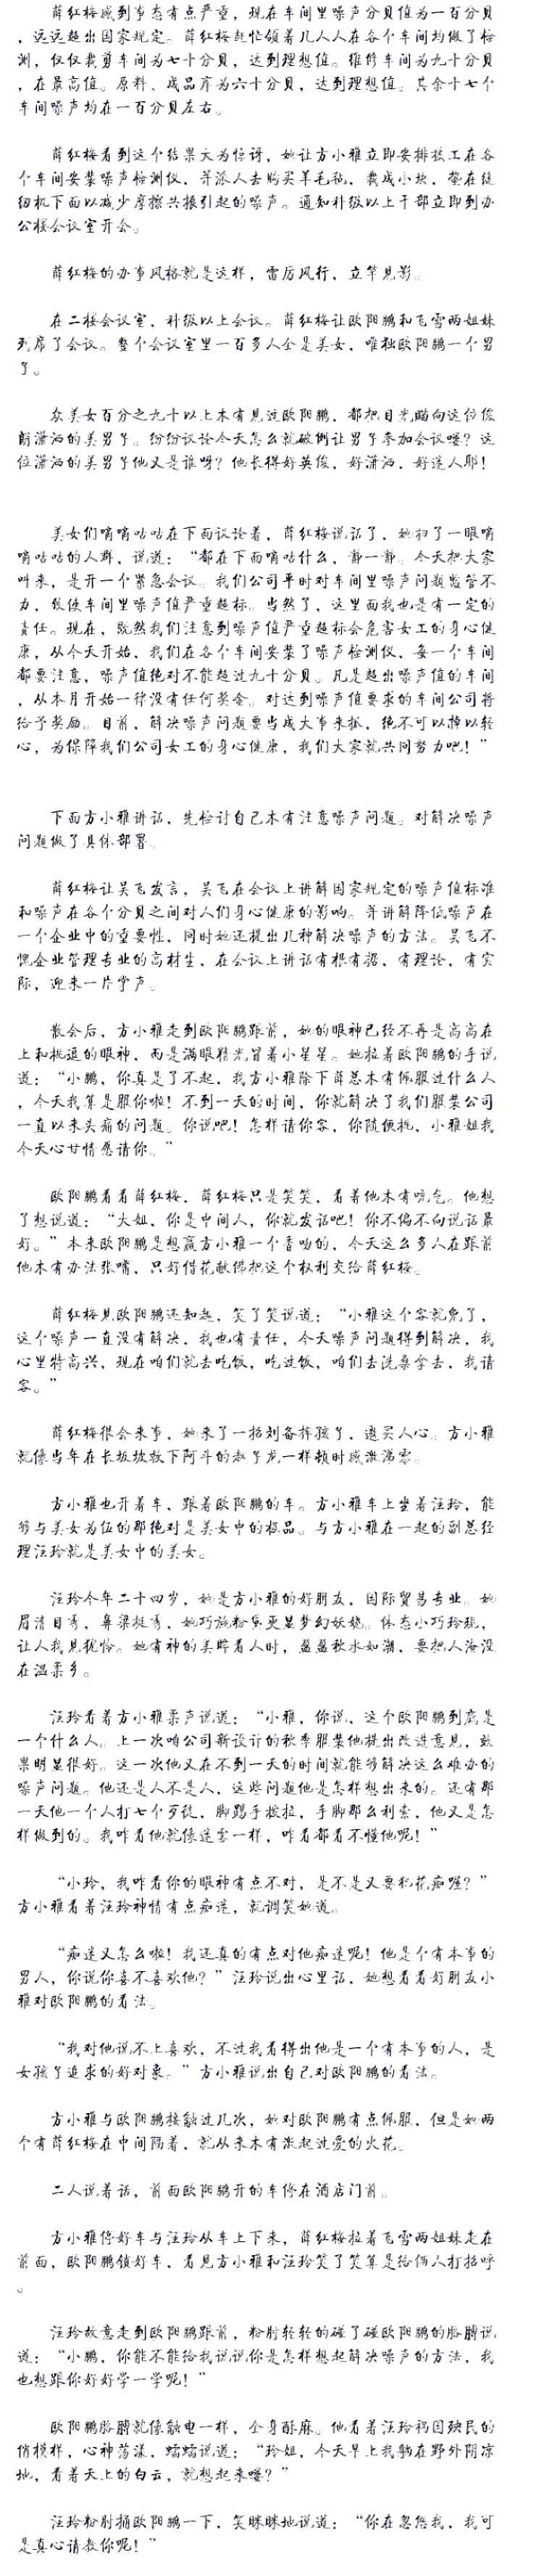 薛红梅感到事态有点严重，现在车间里噪声分贝值为一百分贝
，远远超出国家规定。薛红梅赶忙领着几人人在各个车间均做了检
测，仅仅裁剪车间为七十分贝，达到理想值。维修车间为九十分贝
，在最高值。原料、成品库为六十分贝，达到理想值。其余十七个
车间噪声均在一百分贝左右。
薛红梅看到这个结果大为惊讶，她让方小雅立即安排技工在各
个车间安装噪声检测仪，并派人去购买羊毛毡，裁成小块，垫在缝
纫机下面以减少摩擦共振引起的噪声。通知科级以上干部立即到办
公楼会议室开会。
薛红梅的办事风格就是这样，雷厉风行、立竿见影。
在二楼会议室，科级以上会议。薛红梅让欧阳鹏和飞雪两姐妹
列席了会议。整个会议室里一百多人全是美女，唯独欧阳鹏一个男
子。
众美女百分之九十以上木有见过欧阳鹏，都把目光瞄向这位俊
朗潇洒的美男子。纷纷议论今天怎么就破例让男子参加会议喽？这
位潇洒的美男子他又是谁呀？他长得好英俊，好潇洒，好迷人耶！
美女们嘀嘀咕咕在下面议论着，薛红梅说话了，她扫了一眼嘀
嘀咕咕的人群，说道：“都在下面嘀咕什么，静一静。今天把大家
叫来，是开一个紧急会议。我们公司平时对车间里噪声问题监管不
力，致使车间里噪声值严重超标。当然了，这里面我也是有一定的
责任。现在，既然我们注意到噪声值严重超标会危害女工的身心健
康，从今天开始，我们在各个车间安装了噪声检测仪，每一个车间
都要注意，噪声值绝对不能超过九十分贝。凡是超出噪声值的车间
，从本月开始一律没有任何奖金。对达到噪声值要求的车间公司将
给予奖励。目前，解决噪声问题要当成大事来抓，绝不可以掉以轻
心，为保障我们公司女工的身心健康，我们大家就共同努力吧！”
下面方小雅讲话，先检讨自己木有注意噪声问题。对解决噪声
问题做了具体部署。
薛红梅让吴飞发言，吴飞在会议上讲解国家规定的噪声值标准
和噪声在各个分贝之间对人们身心健康的影响。并讲解降低噪声在
一个企业中的重要性，同时她还提出几种解决噪声的方法。吴飞不
愧企业管理专业的高材生，在会议上讲话有根有据，有理论，有实
际，迎来一片掌声。
散会后，方小雅走到欧阳鹏跟前，她的眼神已经不再是高高在
上和挑逗的眼神，而是满眼精光冒着小星星。她拉着欧阳鹏的手说
道：“小鹏，你真是了不起，我方小雅除下薛总木有佩服过什么人
，今天我算是服你啦！不到一天的时间，你就解决了我们服装公司
一直以来头痛的问题。你说吧！怎样请你客，你随便挑，小雅姐我
今天心甘情愿请你。”
欧阳鹏看看薛红梅，薛红梅只是笑笑，看着他木有吭气。他想
了想说道：“大姐，你是中间人，你就发话吧！你不偏不向说话最
好。”本来欧阳鹏是想赢方小雅一个香吻的，今天这么多人在跟前
他木有办法张嘴，只好借花献佛把这个权利交给薛红梅。
薛红梅见欧阳鹏还知趣，笑了笑说道：“小雅这个客就免了，
这个噪声一直没有解决，我也有责任，今天噪声问题得到解决，我
心里特高兴，现在咱们就去吃饭，吃过饭，咱们去洗桑拿去，我请
客。”
薛红梅很会来事，她来了一招刘备摔孩子，邀买人心。方小雅
就像当年在长坂坡救下阿斗的赵子龙一样顿时感激涕零。
方小雅也开着车，跟着欧阳鹏的车。方小雅车上坐着汪玲，能
够与美女为伍的那绝对是美女中的极品。与方小雅在一起的副总经
理汪玲就是美女中的美女。
汪玲今年二十四岁，她是方小雅的好朋友，国际贸易专业。她
眉清目秀，鼻梁挺秀，她巧施粉黛更显梦幻妖娆。体态小巧玲珑，
让人我见犹怜。她有神的美眸看人时，盈盈秋水如潮，要把人淹没
在温柔乡。
汪玲看着方小雅柔声说道：“小雅，你说，这个欧阳鹏到底是
一个什么人。上一次咱公司新设计的秋季服装他提出改进意见，效
果明显很好。这一次他又在不到一天的时间就能够解决这么难办的
噪声问题。他还是人不是人，这些问题他是怎样想出来的。还有那
一天他一个人打七个歹徒，脚踢手挨拉，手脚那么利索，他又是怎
样做到的。我咋看他就像迷雾一样，咋看都看不懂他呢！”
“小玲，我咋看你的眼神有点不对，是不是又要犯花痴喔？”
方小雅看着汪玲神情有点痴迷，就调笑她道。
“痴迷又怎么啦！我还真的有点对他痴迷呢！他是个有本事的
男人，你说你喜不喜欢他？”汪玲说出心里话，她想看看好朋友小
雅对欧阳鹏的看法。
“我对他说不上喜欢，不过我看得出他是一个有本事的人，是
女孩子追求的好对象。”方小雅说出自己对欧阳鹏的看法。
方小雅与欧阳鹏接触过几次，她对欧阳鹏有点佩服，但是她两
个有薛红梅在中间隔着，就从来木有激起过爱的火花。
二人说着话，前面欧阳鹏开的车停在酒店门前。
方小雅停好车与汪玲从车上下来，薛红梅拉着飞雪两姐妹走在
前面，欧阳鹏锁好车，看见方小雅和汪玲笑了笑算是给俩人打招呼
。
汪玲故意走到欧阳鹏跟前，粉肘轻轻的碰了碰欧阳鹏的胳膊说
道：“小鹏，你能不能给我说说你是怎样想起解决噪声的方法，我
也想跟你好好学一学呢！”
欧阳鹏胳膊就像触电一样，全身酥麻。他看着汪玲祸国殃民的
俏模样，心神荡漾，蠕蠕说道：“玲姐，今天早上我躺在野外阴凉
地，看着天上的白云，就想起来喽？”
汪玲粉肘捅欧阳鹏一下，笑眯眯地说道：“你在忽悠我，我可
是真心请教你呢！”